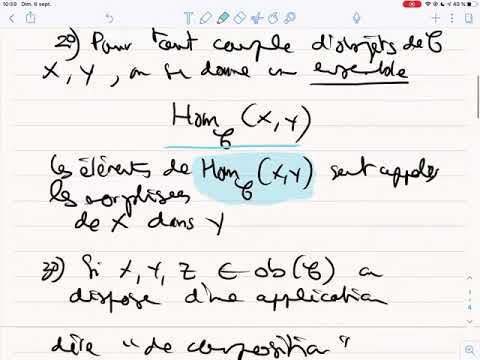 10:59 Dim. 6 sept.
43 %
2º) Pour tout couple d'objets de C
X, Y, on se donne un ensemble
Hom_C (X, Y)
les éléments de Hom_C (X,Y) sont appelés
les morphismes
de X dans Y
3º) Si X, Y, Z ∈ ob(C) on
dispose d'une application
dite "de composition"
1
4